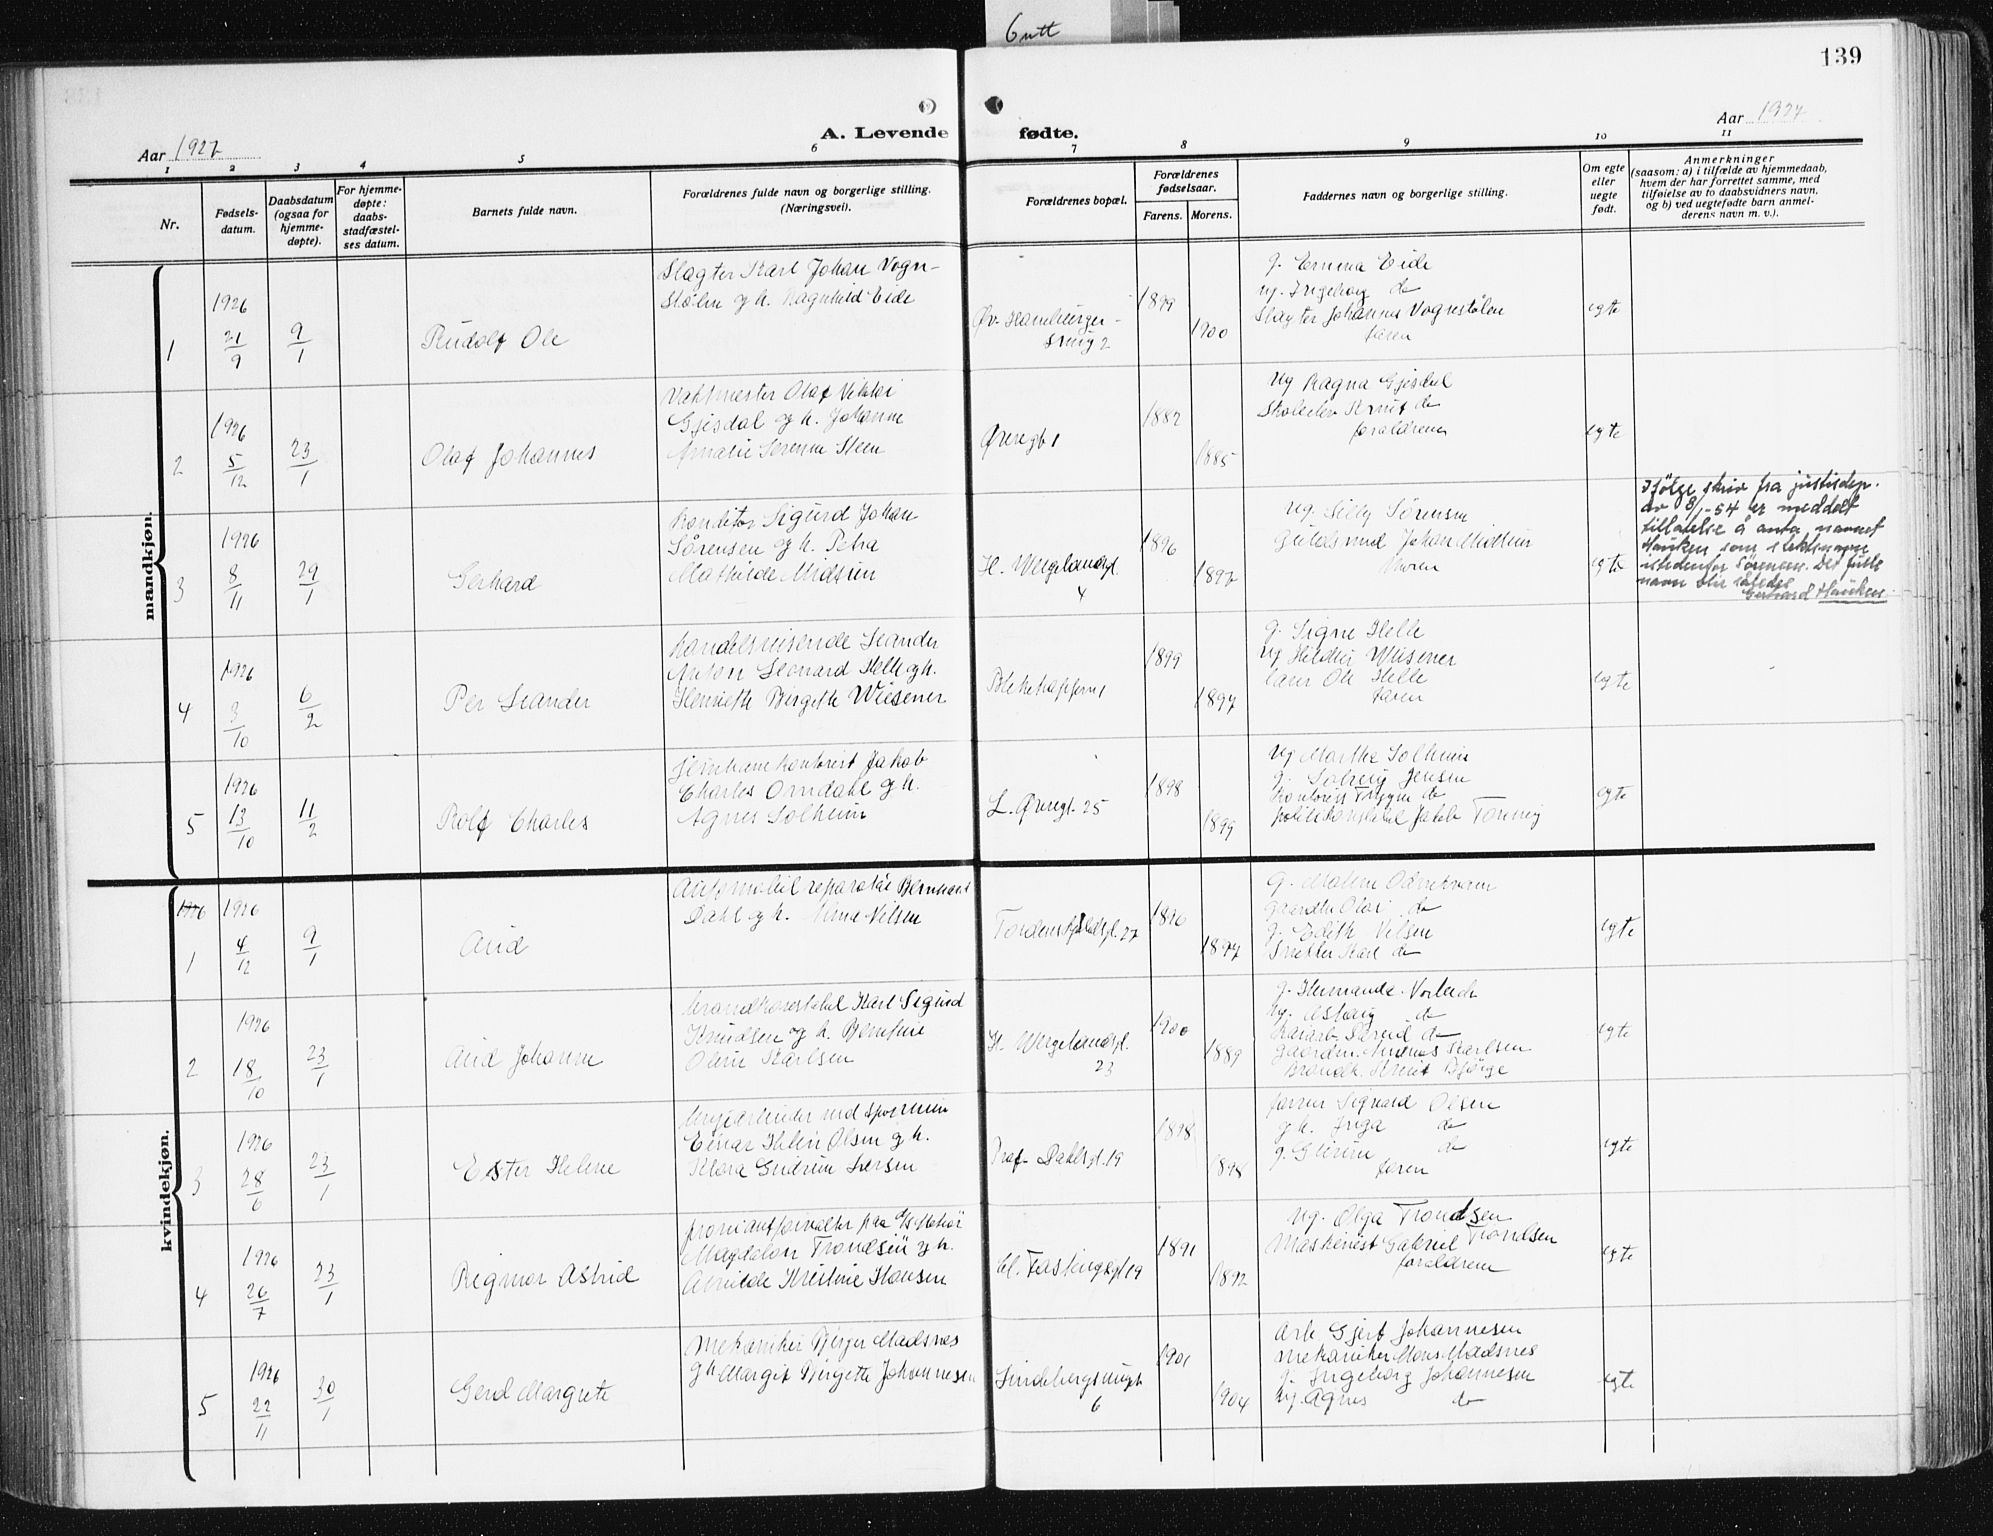 6 utt
139
Aar 1927
A. Levende fødte.
Aar 1927
1 2 3 4 5 6 7 8 9 10 11
Nr.
Fødsels-
datum.
Daabsdatum
(ogsaa for
hjemme-
døpte).
For hjemme-
døpte:
daabs-
stadfæstel-
ses datum.
Barnets fulde navn.
Forældrenes fulde navn og borgerlige stilling.
(Næringsvei).
Forældrenes bopæl.
Forældrenes
fødselsaar.
Farens. Morens.
Faddernes navn og borgerlige stilling.
Om egte
eller
uegte
født.
Anmerkninger
(saasom: a) i tilfælde av hjemmedaab,
hvem der har forrettet samme, med
tilføielse av to daabsvidners navn,
og b) ved uegtefødte barn anmel-
derens navn m. v.).
mandkjøn.
1
1926
21/9
9/1
Rudolf Ole
Slagter Karl Johan Vogn-
stølen og h. Ragnhild Eide
Øv. Hamburger-
smug 2
1899
1900
g. Emma Eide
ug. Ingeborg do
Slagter Johannes Vognstølen
faren
egte
2
1926
5/12
23/1
Olaf Johannes
Vaktmester Olaf Viktor
Gjesdal og h. Johanne
Amalie Sørine Steen
Øvregt 1
1882
1885
ug Ragna Gjesdal
Skoleelev Knut do
forældrene
egte
3
1926
8/11
29/1
Gerhard
Konditor Sigurd Johan
Sørensen og h. Petra
Mathilde Midtun
H. Wergelandsgt.
4
1896
1897
ug. Silly Sørensen
Guldsmed Johan Midttun
Moren
egte
Ifølge skriv fra justisdep.
av 8/1-54 er meddelt
tillatelse å anta navnet
Hauken som slektsnavn
istedenfor Sørensen. Det fulle
navn blir således
Gerhard Hauken.
4
1926
3/10
6/2
Per Leander
Handelsreisende Leander
Anton Leonard Helle g h.
Henriette Birgitte Wiesener
Blekehapperne
1899
1897
g. Signe Helle
ug Hildur Wiesener
Ole Helle
faren
egte
5
1926
13/10
11/2
Rolf Charles
Jernbanekontorist Jakob
Charles Omdahl g h.
Agnes Solheim
L. Øvregt. 25
1898
1899
ug Martha Solheim
g. Solveig Jensen
Kontorist Trygve do
politikonstabel Jakob
egte
kvindekjøn.
1926
1
1926
4/12
9/1
Aud
Automobilreparatør Bernhard
Dahl g h. Alma Nilsen
Tordenskjoldsgt. 27
1896
1897
g. Malene Odnekvam
Olai do
g. Edith Nilsen
Snekker Karl do
egte
2
1926
18/10
23/1
Aud Johanne
brandkonstabel Karl Sigurd
Knudsen og h. Bernhine
Oline Karlsen
H. Wergelandsgt.
23
1900
1889
g. Hermanda
ug. Astrid do
do
Karlsen
Brandk. Knut
egte
3
1926
28/6
23/1
Ester Helene
Einar Helen Olsen g h.
Klara Gudrun Larsen
Prof. Dahlsgt. 19
1898
1898
Sigvard Olsen
g h. Inga do
g. do
faren
egte
4
1926
26/7
23/1
Rigmor Astrid
proviantforvalter paa
Magdalon Trondsen g h.
Alvilde Kristine Hansen
Cl. Fastingsgt 19
1891
1892
ug. Olga Trondsen
Maskinist Gabriel Trondsen
forældrene
egte
5
1926
22/11
30/1
Gerd Margrete
Mekaniker Birger Madsnes
g h Margit Birgitte Johannesen
Lindebergsmuget
6
1901
1904
Arb. Gjert Johannesen
Mekaniker Mons Madsnes
g. Ingeborg Johannesen
ug. Agnes do
egte